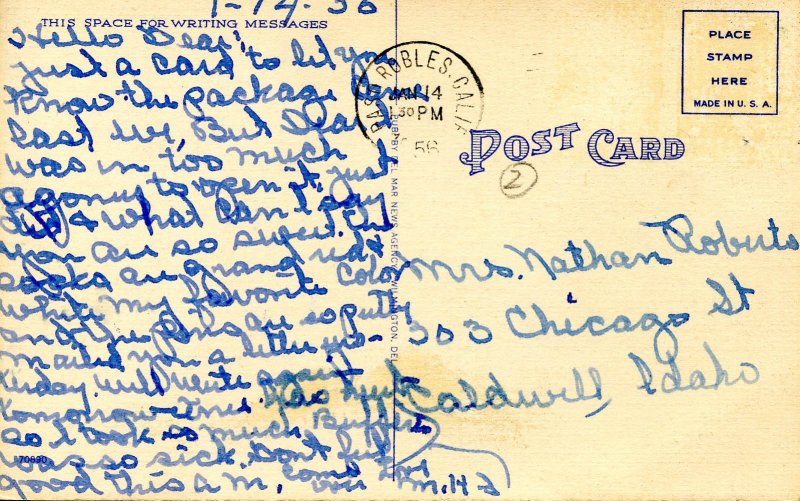 1-14-56
THIS SPACE FOR WRITING MESSAGES
Hello Dear;
just a card to let you
know the package came
last eve, But Dear
was in too much
agony to open it, just
what can I say
you are so sweet. The
socks are grand red &
white my favorite color
and the pins are so pretty
mailed you a letter yes-
terday. will write again
tomorrow
so I took so much Buffer
was so sick. Dont feel
good this a.m.
Love
PASO ROBLES, CALIF
JAN 14
1 30 PM
56
POST CARD
2
PLACE
STAMP
HERE
MADE IN U. S. A.
Mrs. Nathan Roberts
303 Chicago St
Caldwell, Idaho
MAR NEWS AGENCY, WILMINGTON, DEL
70890